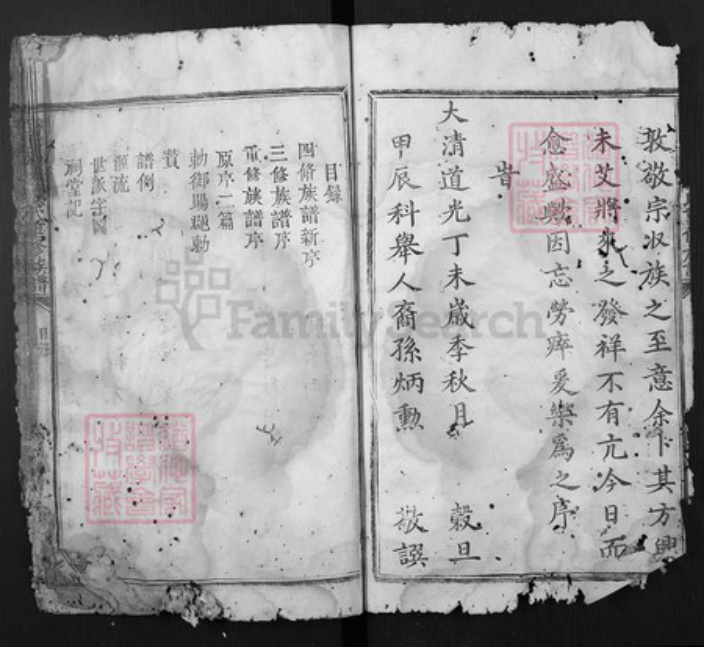 敦敬宗收族之至意余卜其方興
未艾將來之發祥不有亢今日而
愈盛歟因忘勞瘁爰樂為之序
時
大清道光丁未歲季秋月 穀旦
甲辰科舉人裔孫炳勳 敬譔
目錄
四脩族譜新序
三修族譜序
重修族譜序
原序二篇
勅御賜
贊
譜例
源流
世派字
祠堂記
族譜
目錄
FamilySearch